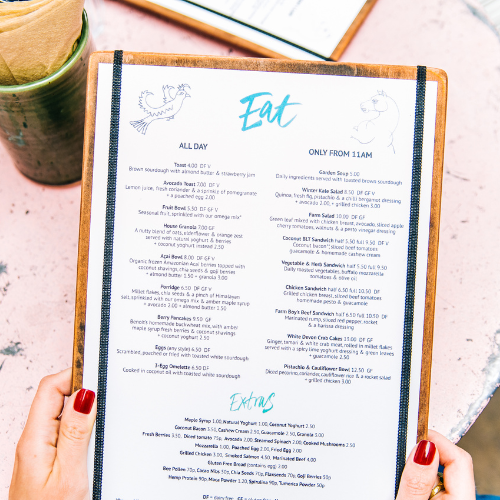 Eat
ALL DAY
Toast 4.00 DF V
Brown sourdough with almond butter & strawberry jam
Avocado Toast 7.00 DF V
Lemon juice, fresh coriander & a sprinkle of pomegranate
+ a poached egg 2.00
Fruit Bowl 5.50 DF V
Seasonal fruit, sprinkled with our omega mix*
House Granola 7.00 GF
A nutty blend of oats, elderflower & orange zest
served with natural yoghurt & berries
+ coconut yoghurt instead 2.50
Acai Bowl 8.00 DF V
Organic frozen Amazonian Acai berries topped with
coconut shavings, chia seeds & goji berries
+ almond butter 1.50 + granola 3.00
Porridge 6.50 DF V
Millet flakes, chia seeds & a pinch of Himalayan
salt, sprinkled with our omega mix & amber maple syrup
+ avocado 2.00 + almond butter 1.50
Berry Pancakes 9.50 GF
Benoîte's homemade buckwheat mix, with amber
maple syrup fresh berries & coconut shavings
+ coconut yoghurt 2.50
Eggs (any style) 6.50 DF
Scrambled, poached or fried with toasted white sourdough
3-Egg Omelette 6.50 DF
Cooked in coconut oil with toasted white sourdough
ONLY FROM 11AM
Garden Soup 5.00
Daily ingredients served with toasted brown sourdough
Winter Kale Salad 8.50 DF GF V
Quinoa, fresh fig, pistachio & a chilli bergamot dressing
+ avocado 2.00 + grilled chicken 3.00
Farm Salad 10.00 DF GF
Green leaf mixed with chicken breast, avocado, sliced apple
cherry tomatoes, walnuts & a pesto vinegar dressing
Coconut BLT Sandwich half 5.50 full 9.50 DF V
Coconut "bacon", sliced beef tomatoes
guacamole & homemade cashew cream
Vegetable & Herb Sandwich half 5.50 full 9.50
Daily roasted vegetables, buffalo mozzarella
tomatoes & olive oil
Chicken Sandwich half 6.50 full 10.50 DF
Grilled chicken breast, sliced beef tomatoes
homemade pesto & guacamole
Farm Boy's Beef Sandwich half 6.50 full 10.50 DF
Marinated rump, sliced red pepper, rocket
& a harissa dressing
White Devon Crab Cakes 13.00 DF GF
Ginger, lemon & white crab meat, rolled in millet flakes
served with a spicy lime yoghurt dressing & green leaves
+ guacamole 2.50
Pistachio & Cauliflower 12.50 DF V
Diced pecorino, coriander, cauliflower rice & a rocket salad
+ grilled chicken 3.00
Extras
Maple Syrup 1.00, Natural Yoghurt 1.00, Coconut Yoghurt 2.50
Coconut Bacon 3.50, Cashew Cream 2.50, Guacamole 2.50, Granola 3.00
Fresh Berries 3.50, Diced tomato 75p, Avocado 2.00, Steamed Spinach 2.00, Cooked Mushrooms 2.50
Mozzarella 1.00, Poached Egg 2.00, Fried Egg 2.00
Grilled Chicken 3.00, Smoked Salmon 4.50, Marinated Beef 4.00
Gluten Free Bread (contains egg) 2.00
Bee Pollen 75p, Cacao Nibs 50p, Chia Seeds 70p, Flaxseeds 50p, Goji Berries 50p
Hemp Protein 90p, Maca Powder 1.20, Spirulina 90p, Turmeric Powder 50p
DF = dairy free